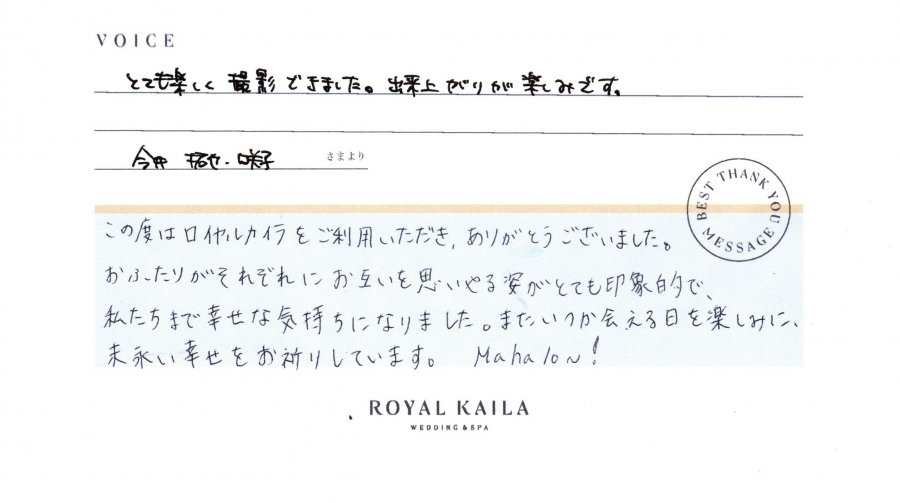 VOICE
とても楽しく 撮影できました。出来上がりが 楽しみです。
今井 拓也・咲子 さまより
BEST THANK YOU MESSAGE
この度はロイヤルカイラをご利用いただき、ありがとうございました。
おふたりがそれぞれにお互いを思いやる姿がとても印象的で、
私たちまで幸せな気持ちになりました。またいつか会える日を楽しみに、
末永い幸せをお祈りしています。 Mahalo~!
ROYAL KAILA
WEDDING & SPA